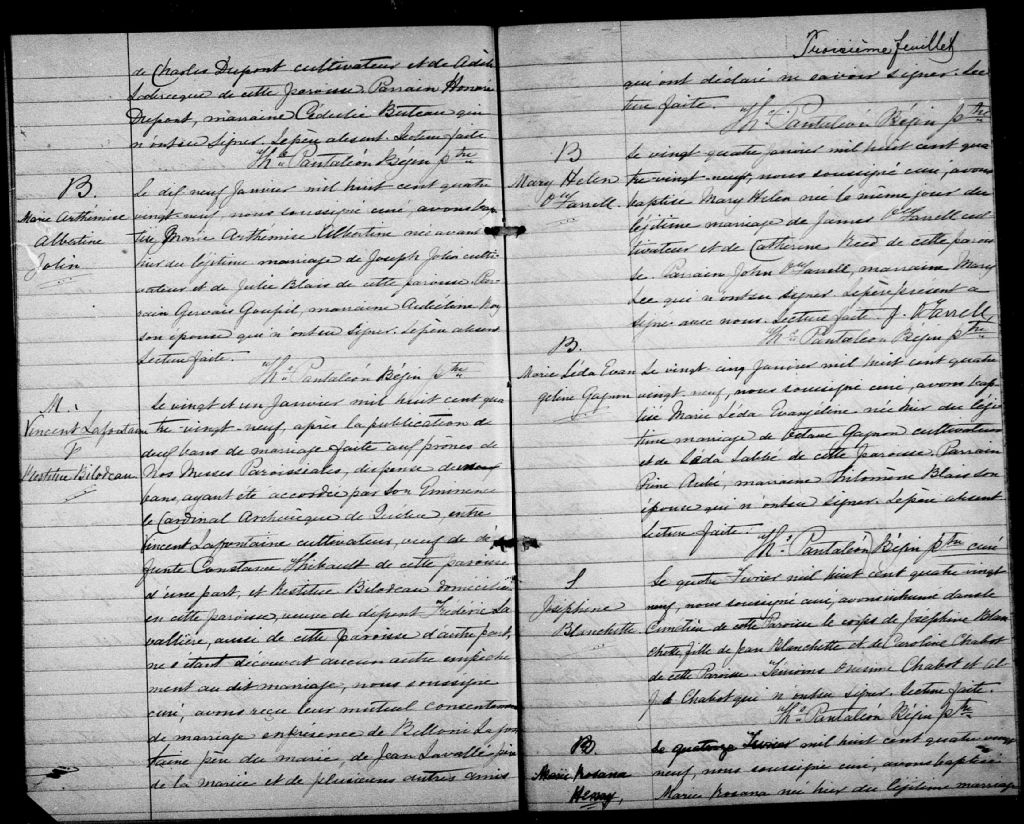 de Charles Dupont cultivateur et de Adèle
Leclercque de cette paroisse. Parrain Honoré
Dupont, marraine Cédulie Buteau qui
n'ont su signer. Le père absent. Lecture faite
Ths Pantaléon Bégin ptre
B.
Marie Arthémise
Albertine
Jolin
Le dix neuf Janvier mil huit cent quatre
vingt-neuf, nous soussigné curé, avons bap
tisé Marie Arthémise Albertine née avant
hier du légitime mariage de Joseph Jolin culti
vateur et de Julie Blais de cette paroisse. Par-
rain Gervais Goupil, marraine Audeline Roy
son épouse qui n'ont su signer. Le père absent
Lecture faite.
Ths Pantaléon Bégin ptre
M.
Vincent Lafontaine
&
Restitue Bilodeau
Le vingt et un Janvier mil huit cent qua
tre-vingt-neuf, après la publication de
deux bans de mariage faite aux prônes de
Nos Messes Paroissiales, dispense de
bans, ayant été accordée par Son Eminence
le Cardinal Archevêque de Québec, entre
Vincent Lafontaine cultivateur, veuf de dé
funte Constance Thibault de cette paroisse
d'une part, et Restitue Bilodeau domiciliée
en cette paroisse, veuve de défunt Frédéric La
vallière, aussi de cette paroisse d'autre part,
ne s'étant découvert aucun autre empêche
ment au dit mariage, nous soussigné
curé, avons reçu leur mutuel consentement
de mariage en présence de Belloni Lafon
taine père du marié, de Jean Lavallé père
de la mariée et de plusieurs autres amis
Troisième feuillet
qui ont déclaré ne savoir signer. Lec
ture faite.
Ths Pantaléon Bégin ptre
B
Mary Helen
O'Farrell
Le vingt quatre janvier mil huit cent qua
tre-vingt-neuf, nous soussigné curé, avons
baptisé Mary Helen née le même jour du
légitime mariage de James O'Farrell cul
tivateur et de Catherine Reed de cette parois
se. Parrain John O'Farrell, marraine Mary
Lee qui n'ont su signer. Le père présent a
signé avec nous. Lecture faite. J. O'Farrell
Ths Pantaléon Bégin ptre
B.
Marie Léda Evan
géline Gagnon
Le vingt cinq Janvier mil huit cent quatre
vingt-neuf, nous soussigné curé, avons bap
tisé Marie Léda Evangéline née hier du légi
time mariage de Octave Gagnon cultivateur
et de Léda Labbé de cette paroisse. Parrain
Aubé, marraine Philomène Blais son
épouse qui n'ont su signer. Le père absent
Lecture faite.
Ths Pantaléon Bégin ptre curé
S
Joséphine
Blanchette
Le quatre Février mil huit cent quatre vingt
neuf, nous soussigné curé, avons inhumé dans le
Cimetière de cette Paroisse le corps de Joséphine Blan
chette, fille de Jean Blanchette et de Caroline Chabot
de cette Paroisse. Témoins Onésime Chabot et
Chabot qui n'ont su signer. Lecture faite.
Ths Pantaléon Bégin ptre
B
Marie Rosana
Henry,
Le quatorze Février mil huit cent quatre vingt
neuf, nous soussigné curé, avons baptisé
Marie Rosana née hier du légitime mariage